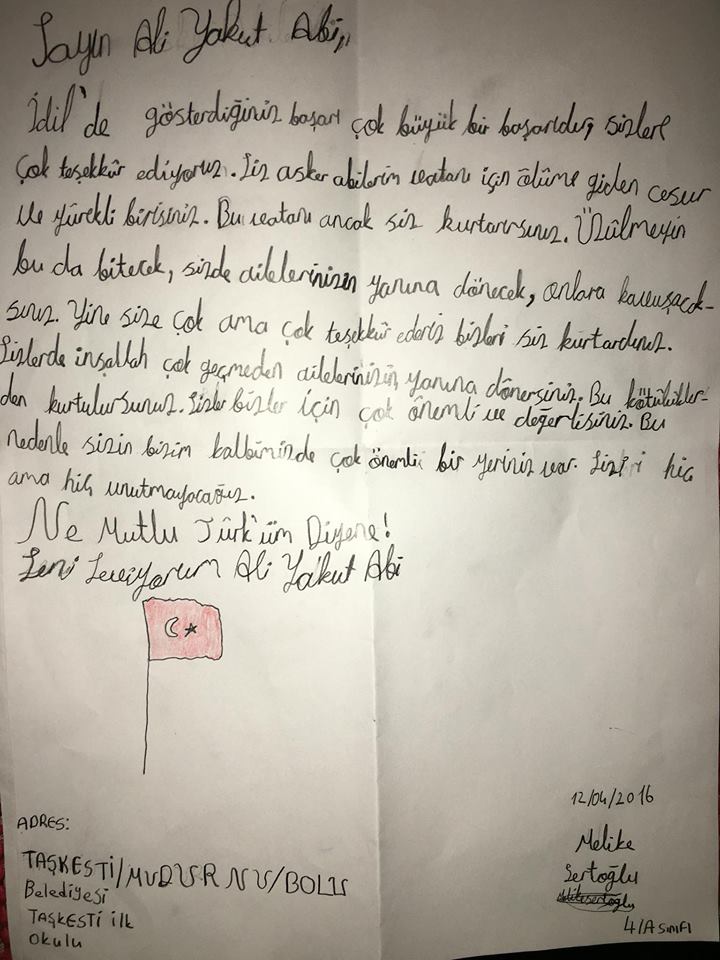 Sayın Ali Yakut Abi,,
İdil'de gösterdiğiniz başarı çok büyük bir başarıdır, sizlere
çok teşekkür ediyoruz. Siz asker abilerim vatanı için ölüme giden cesur
ve yürekli birisiniz. Bu vatanı ancak siz kurtarırsınız. Üzülmeyin
bu da bitecek, sizde ailelerinizin yanına dönecek, onlara kavuşacak-
sınız. Yine size çok ama çok teşekkür ederiz bizleri siz kurtardınız.
Sizlerde inşallah çok geçmeden ailelerinizin yanına dönersiniz. Bu kötülükler-
den kurtulursunuz. Sizler bizler için çok önemli ve değerlisiniz. Bu
nedenle sizin bizim kalbimizde çok önemli bir yeriniz var. Sizleri hiç
ama hiç unutmayacağız.
Ne Mutlu Türk'üm Diyene!
Seni Seviyorum Ali Yakut Abi
12/04/2016
Melike
Sertoğlu
4/A sınıfı
ADRES:
TAŞKESTİ/MUDURNU/BOLU
Belediyesi
TAŞKESTİ ilk
okulu